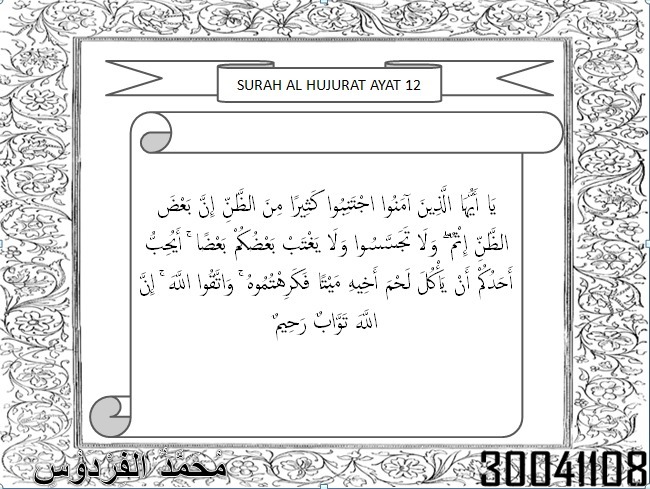 SURAH AL HUJURAT AYAT 12
يَا أَيُّهَا الَّذِينَ آمَنُوا اجْتَنِبُوا كَثِيرًا مِنَ الظَّنِّ إِنَّ بَعْضَ
الظَّنِّ إِثْمٌ ۖ وَلَا تَجَسَّسُوا وَلَا يَغْتَبْ بَعْضُكُمْ بَعْضًا ۚ أَيُحِبُّ
أَحَدُكُمْ أَنْ يَأْكُلَ لَحْمَ أَخِيهِ مَيْتًا فَكَرِهْتُمُوهُ ۚ وَاتَّقُوا اللَّهَ ۚ إِنَّ
اللَّهَ تَوَّابٌ رَحِيمٌ
مُحَمَّدُ الفِرْدَوْس
30041108